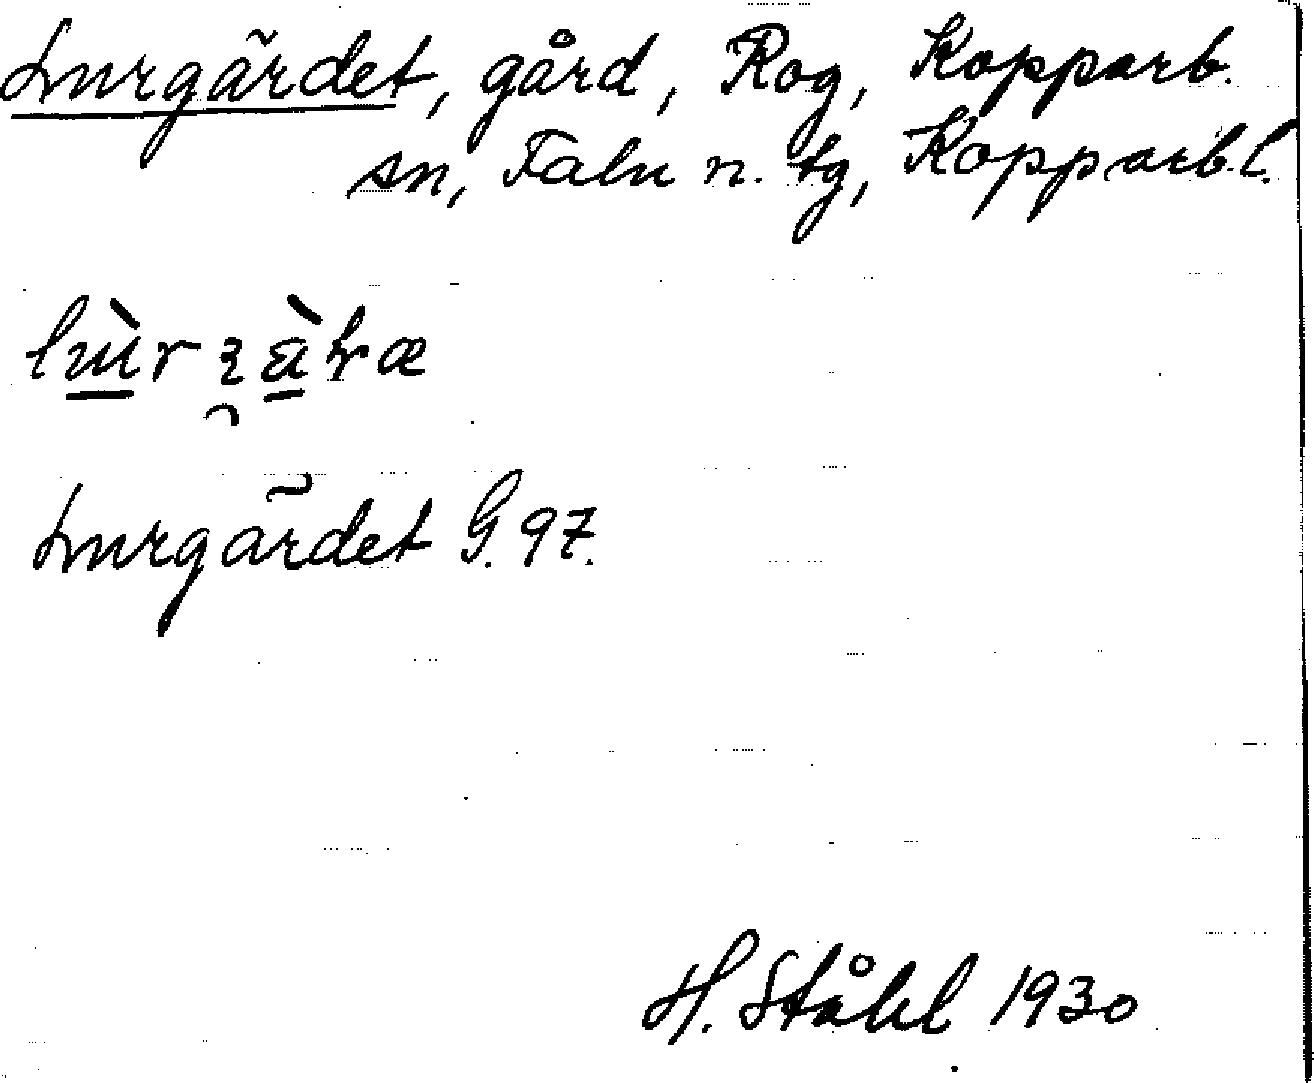 Lurgärdet, gård, Rog, Kopparb.
sn, Falu n. tg, Kopparb.l.
Lurgärdet G. 97.
H. Ståhl 1930